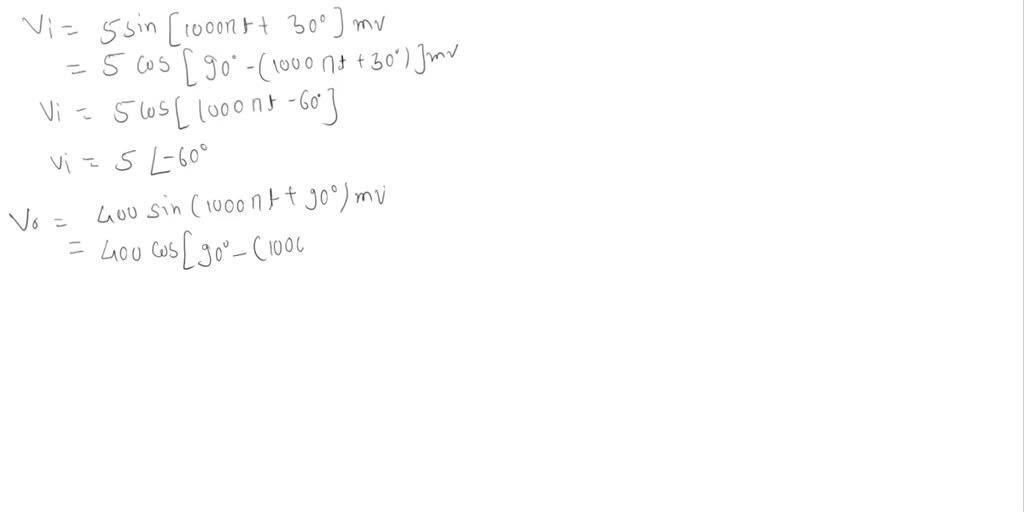 Vi = 5 sin [1000πt + 30°] mv
= 5 cos [90° - (1000πt + 30°)] mv
Vi = 5 cos [1000πt - 60°]
Vi = 5 ∠-60°
Vo = 400 sin (1000πt + 90°) mv
= 400 cos [90° - (100